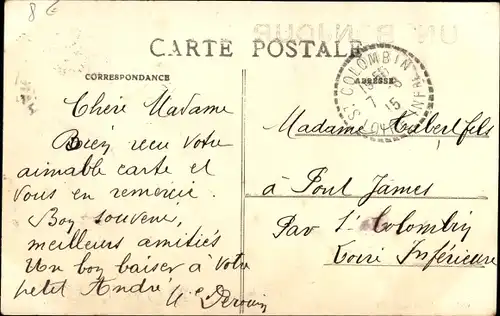 8 €
UN BONJOUR
CARTE POSTALE
CORRESPONDANCE
ADRESSE
ST COLOMBIN LRE INF
7 15
Chere Madame
Bien recu votre
aimable carte et
vous en remercie.
Bon souvenir,
meilleurs amitiés
Un bon baiser à votre
petit André
Derouin
Madame fils
à Pont James
Par St Colombin
Loire Inférieure